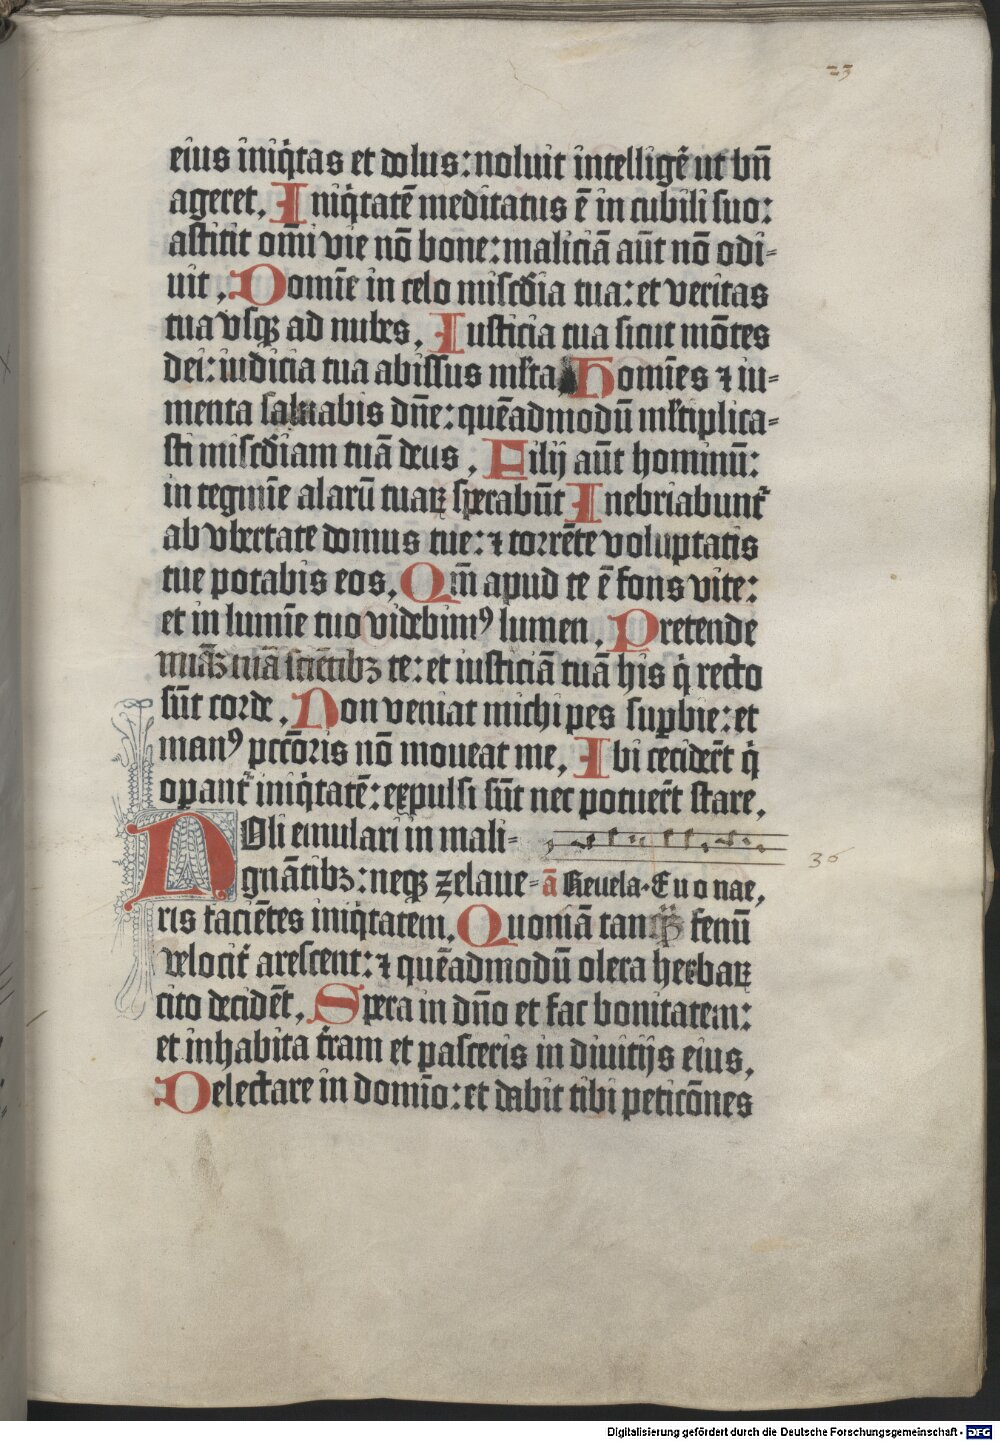 23
eius iniq̇tas et dolus: noluit intelligē ut bn̄
ageret. Iniq̇tatē meditatus ē in cubili suo:
astitit om̄i vie nō bone: maliciā aūt nō odi-
uit. Domīe in celo misc̄dia tua: et veritas
tua vsqꝫ ad nubes. Iusticia tua sicut mōtes
dei: iudicia tua abissus ml̄ta. Homīes ⁊ iu-
menta saluabis dn̄e: quēadmodū ml̄tiplica-
sti misc̄diam tuā deus. Filij aūt hominū:
in tegmīe alarū tuaꝝ sꝑabūt Inebriabunt᷑
ab vbertate domus tue: ⁊ torrēte voluptatis
tue potabis eos. Qm̄ apud te ē fons vite:
et in lumīe tuo videbimꝰ lumen. Pretende
miāꝫ tuā sciētibꝫ te: et iusticiā tuā his q̇ recto
sūt corde. Non veniat michi pes suꝑbie: et
manꝰ pcc̄oris nō moueat me. Ibi cecider̄t q̇
oꝑant᷑ iniq̇tatē: expulsi sūt nec potuer̄t stare.
Noli emulari in mali-
gnātibꝫ: neqꝫ zelaue- ā Reuela. E u o nae.
36
ris faciētes iniq̇tatem. Quoniā tanqꝫ̄ fenū
velocit᷑ arescent: ⁊ quēadmodū olera herbaꝝ
cito decidēt. Spera in dn̄o et fac bonitatem:
et inhabita t̄ram et pasceris in diuitijs eius.
Delectare in domīo: et dabit tibi peticōnes
Digitalisierung gefördert durch die Deutsche Forschungsgemeinschaft - DFG